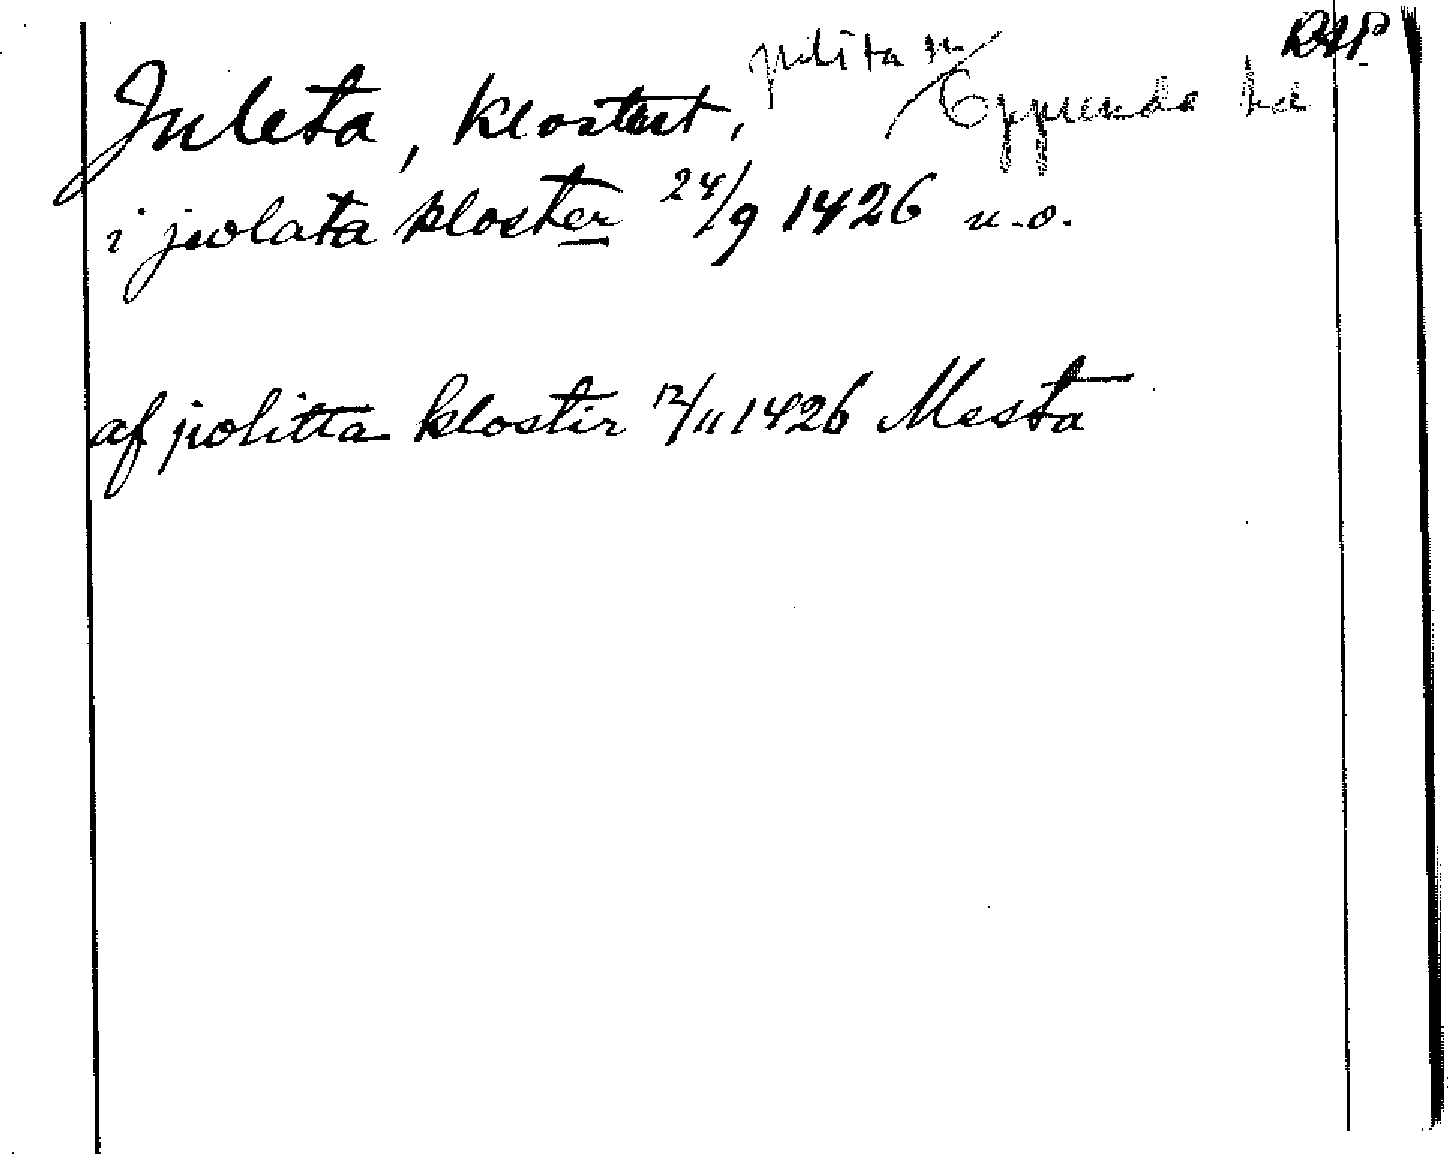 RAP
Juleta, klostret, Julita sn Oppunda hd
i jwlata kloster 24/9 1426 u.o.
af jwlitta klostir 12/11 1426 Mesta